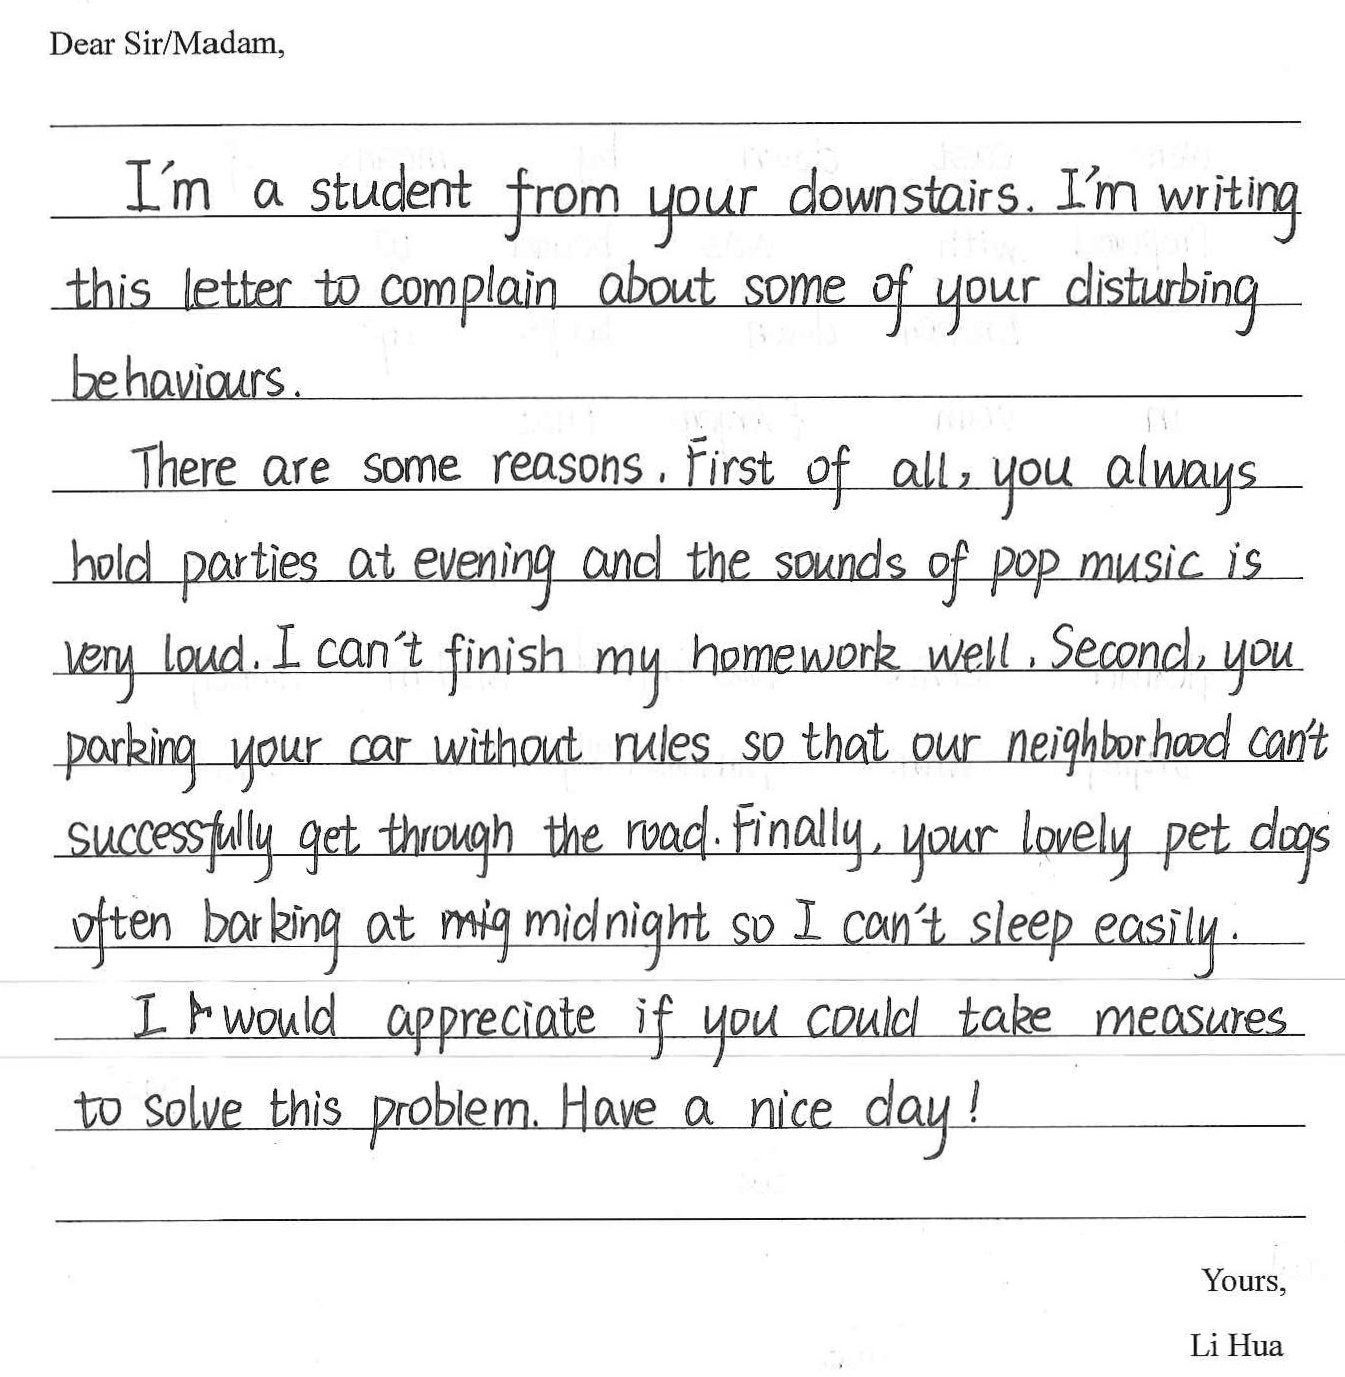 Dear Sir/Madam,
I'm a student from your downstairs. I'm writing
this letter to complain about some of your disturbing
behaviours.
There are some reasons. First of all, you always
hold parties at evening and the sounds of pop music is
very loud. I can't finish my homework well. Second, you
parking your car without rules so that our neighborhood can't
successfully get through the road. Finally, your lovely pet dogs
often barking at mig midnight so I can't sleep easily.
I would appreciate if you could take measures
to solve this problem. Have a nice day!
Yours,
Li Hua